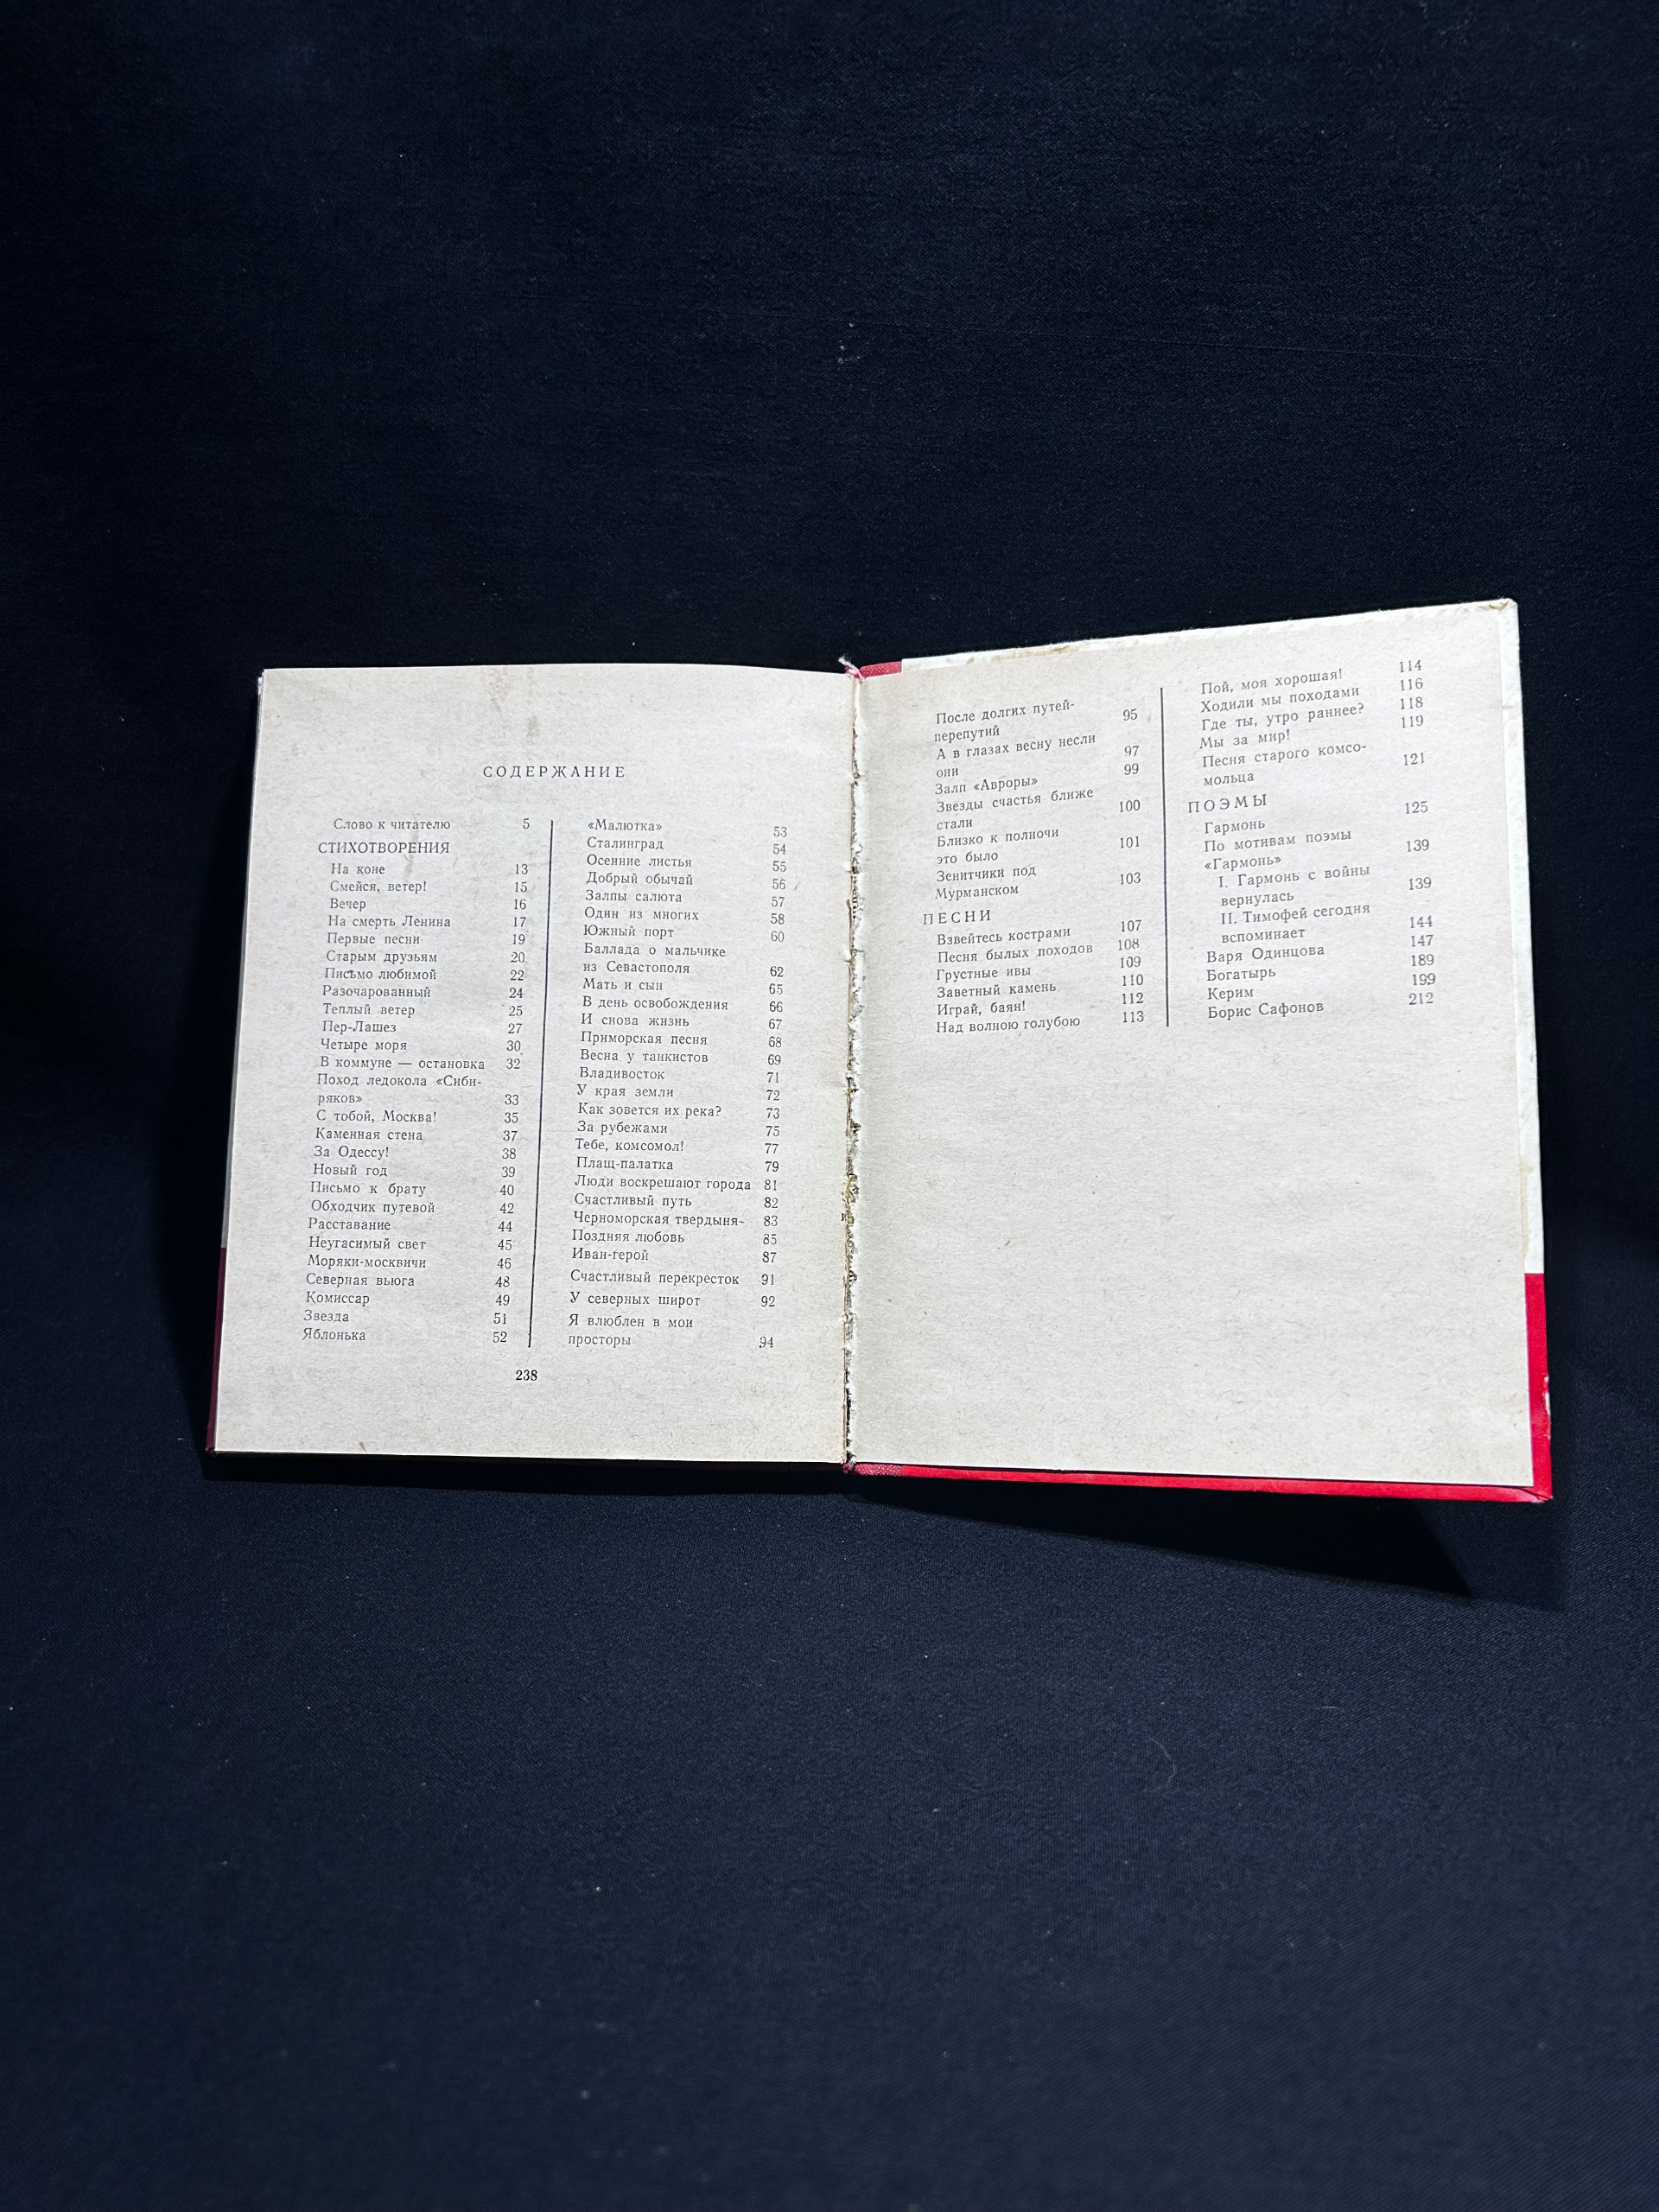 СОДЕРЖАНИЕ
Слово к читателю 5
СТИХОТВОРЕНИЯ
На коне 13
Смейся, ветер! 15
Вечер 16
На смерть Ленина 17
Первые песни 19
Старым друзьям 20
Письмо любимой 22
Разочарованный 24
Теплый ветер 25
Пер-Лашез 27
Четыре моря 30
В коммуне — остановка 32
Поход ледокола «Сиби-
ряков» 33
С тобой, Москва! 35
Каменная стена 37
За Одессу! 38
Новый год 39
Письмо к брату 40
Обходчик путевой 42
Расставание 44
Неугасимый свет 45
Моряки-москвичи 46
Северная вьюга 48
Комиссар 49
Звезда 51
Яблонька 52
«Малютка» 53
Сталинград 54
Осенние листья 55
Добрый обычай 56
Залпы салюта 57
Один из многих 58
Южный порт 60
Баллада о мальчике
из Севастополя 62
Мать и сын 65
В день освобождения 66
И снова жизнь 67
Приморская песня 68
Весна у танкистов 69
Владивосток 71
У края земли 72
Как зовется их река? 73
За рубежами 75
Тебе, комсомол! 77
Плащ-палатка 79
Люди воскрешают города 81
Счастливый путь 82
Черноморская твердыня 83
Поздняя любовь 85
Иван-герой 87
Счастливый перекресток 91
У северных широт 92
Я влюблен в мои
просторы 94
238
После долгих путей-
перепутий 95
А в глазах весну несли
они 97
Залп «Авроры» 99
Звезды счастья ближе
стали 100
Близко к полночи
это было 101
Зенитчики под
Мурманском 103
ПЕСНИ
Взвейтесь кострами 107
Песня былых походов 108
Грустные ивы 109
Заветный камень 110
Играй, баян! 112
Над волною голубою 113
Пой, моя хорошая! 114
Ходили мы походами 116
Где ты, утро раннее? 118
Мы за мир! 119
Песня старого комсо-
мольца 121
ПОЭМЫ
Гармонь 125
По мотивам поэмы
«Гармонь» 139
I. Гармонь с войны
вернулась 139
II. Тимофей сегодня
вспоминает 144
Варя Одинцова 147
Богатырь 189
Керим 199
Борис Сафонов 212